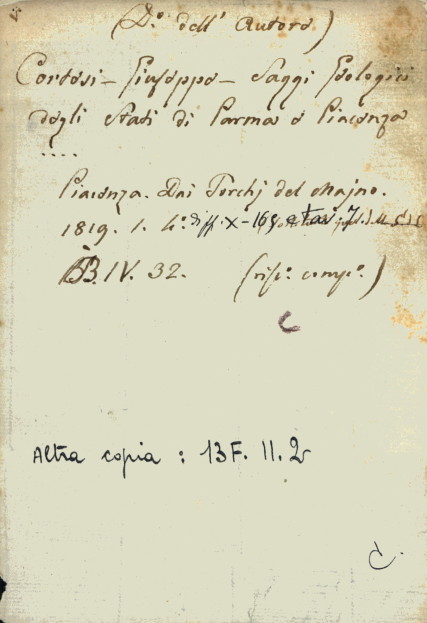 (D.º dell' Autore)
Cortesi - Giuseppe - Saggi Geologici
degli Stati di Parma e Piacenza
....
Piacenza. Dai Torchj del Majno.
1819. 1. 4.º diff. X-165 e tav. 7.
BB. IV. 32. (risp.º comp.º)
C
Altra copia : 13 F. 11. 2
C.